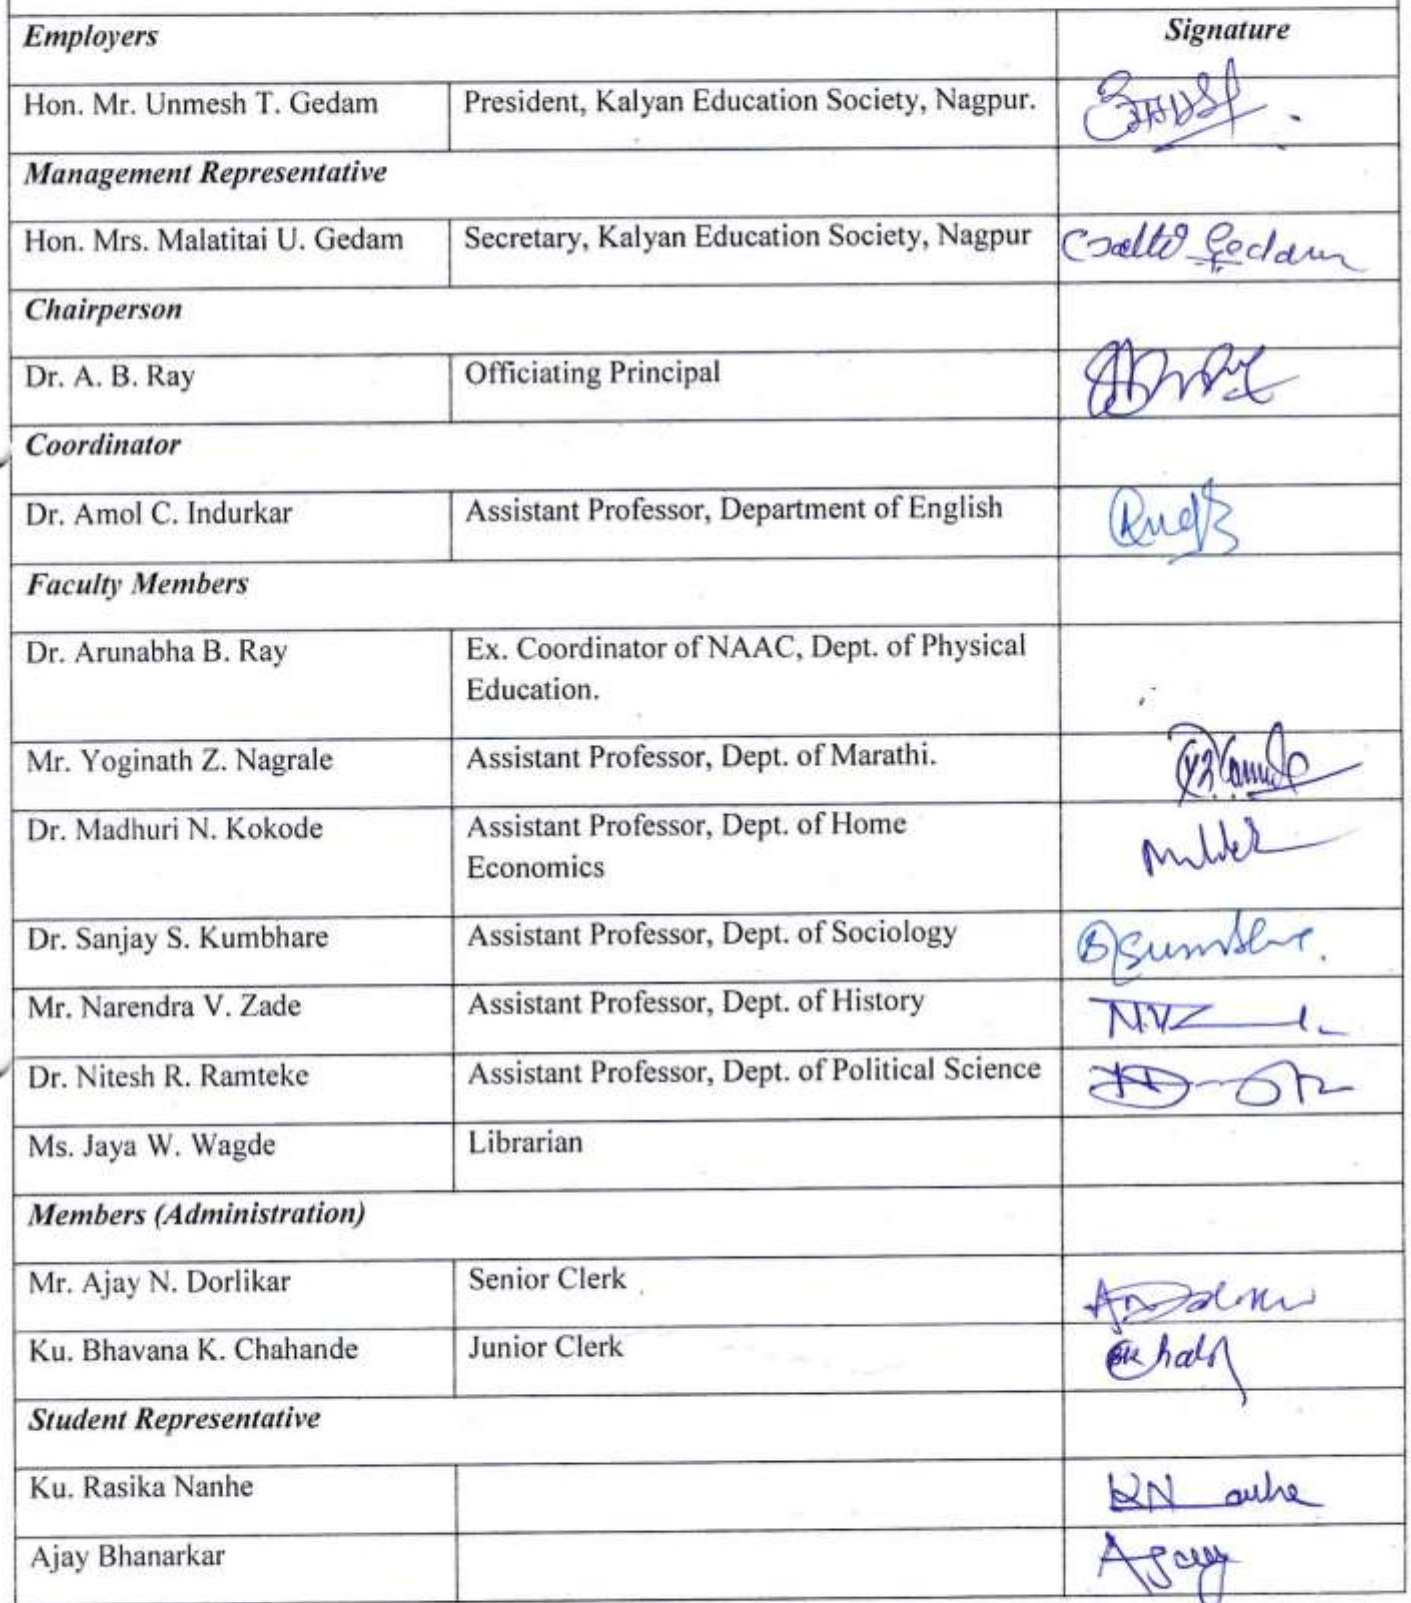 Employers Signature
Hon. Mr. Unmesh T. Gedam President, Kalyan Education Society, Nagpur.
Management Representative
Hon. Mrs. Malatitai U. Gedam Secretary, Kalyan Education Society, Nagpur Gedam
Chairperson
Dr. A. B. Ray Officiating Principal
Coordinator
Dr. Amol C. Indurkar Assistant Professor, Department of English
Faculty Members
Dr. Arunabha B. Ray Ex. Coordinator of NAAC, Dept. of Physical
Education.
Mr. Yoginath Z. Nagrale Assistant Professor, Dept. of Marathi.
Dr. Madhuri N. Kokode Assistant Professor, Dept. of Home
Economics
Dr. Sanjay S. Kumbhare Assistant Professor, Dept. of Sociology
Mr. Narendra V. Zade Assistant Professor, Dept. of History
Dr. Nitesh R. Ramteke Assistant Professor, Dept. of Political Science
Ms. Jaya W. Wagde Librarian
Members (Administration)
Mr. Ajay N. Dorlikar Senior Clerk
Ku. Bhavana K. Chahande Junior Clerk
Student Representative
Ku. Rasika Nanhe
Ajay Bhanarkar Ajay